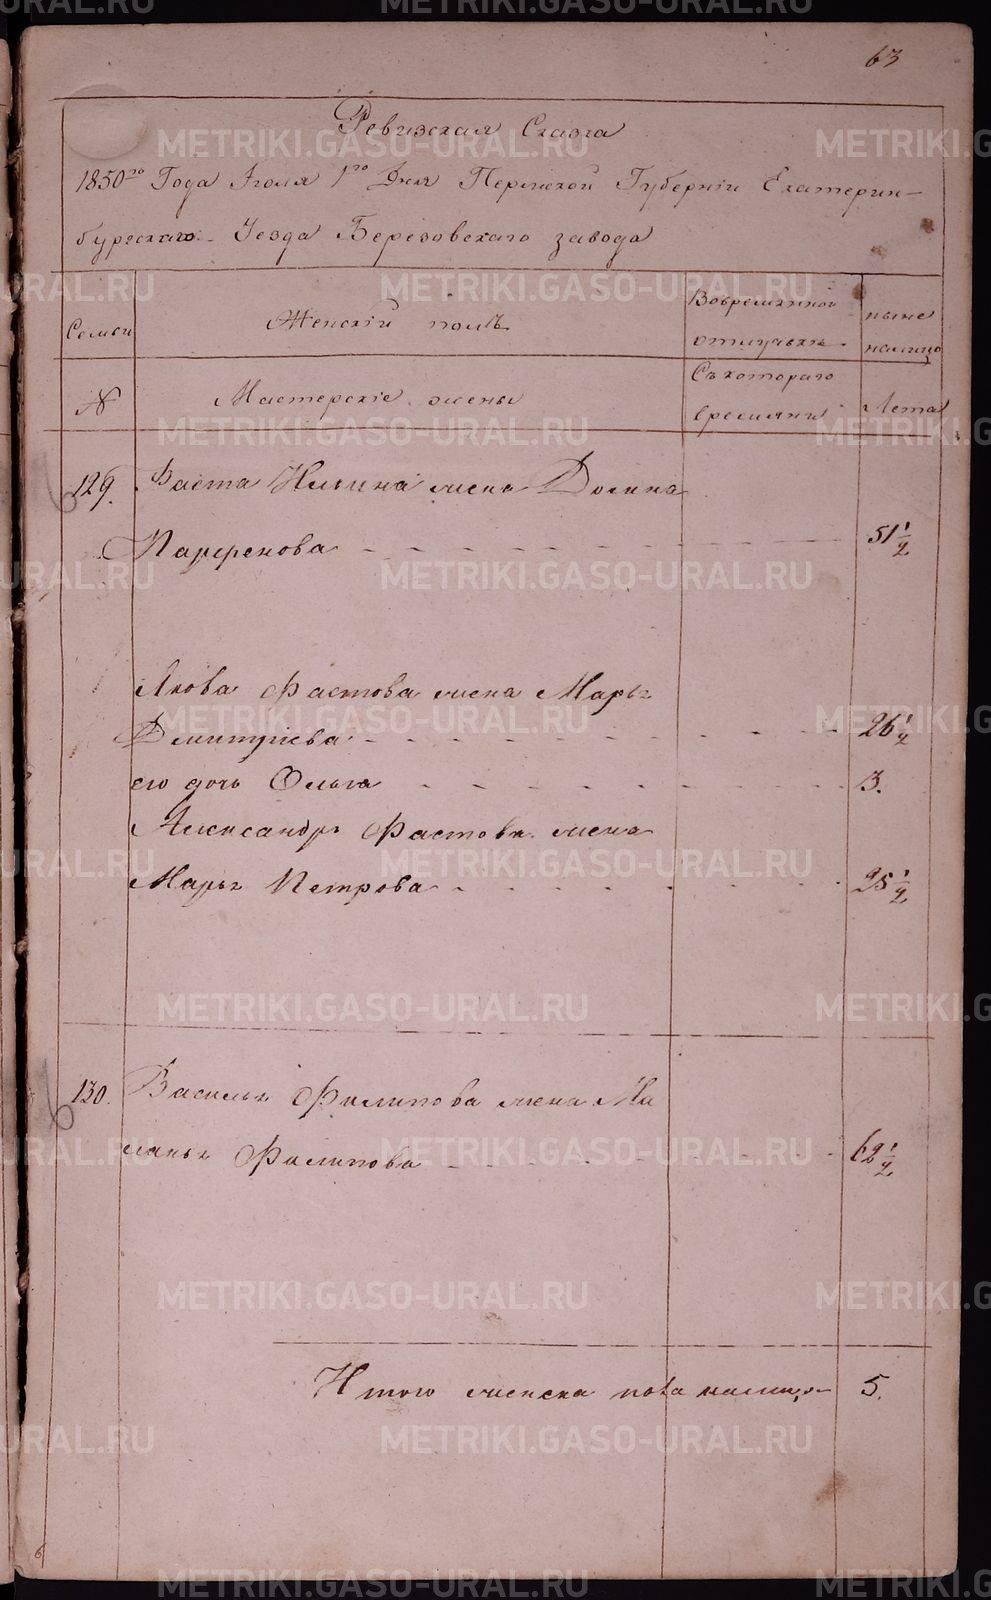 63
Ревизская Сказка
1850го Года Iюля 1го Дня Пермской Губернiи Екатерин-
бургскаго Уезда Березовскаго завода
Семьи
Женскiй полъ
Вовременной
отлучьке
ныне
налицо
№
Мастерскiе жены
Съ котораго
времяни
Лета
129. Фаста Ильина жена Домна
Парфенова 51 1/2
Якова Фастова жена Марья
Дмитрiева 26 1/2
его дочь Ольга 3.
Александра Фастова жена
Марья Петрова 25 1/2
130. Василья Филипова жена Ма
ланья Филипова 62 1/2
Итого женска пола налицо 5.
6
METRIKI.GASO-URAL.RU